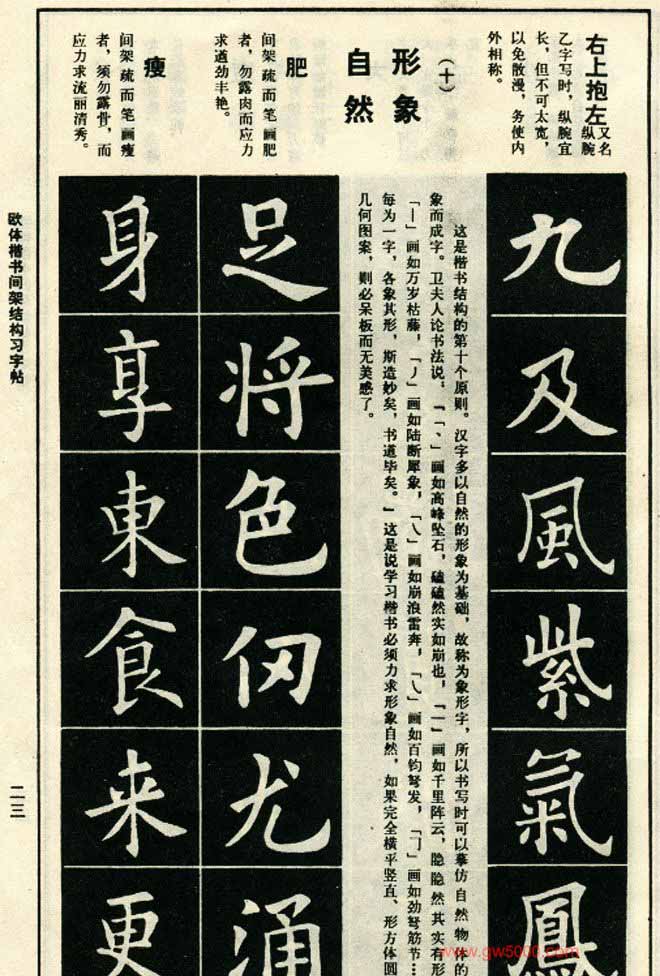 右上抱左
又名
纵腕
乙字写时，纵腕宜
长，但不可太宽，
以免散漫，务使内
外相称。
九
及
風
紫
氣
鳳
（十）
形象
自然
这是楷书结构的第十个原则。汉字多以自然的形象为基础，故称为象形字，所以书写时可以摹仿自然物体的
象而成字。卫夫人论书法说，“「、」画如高峰坠石，磕磕然实如崩也，「一」画如千里阵云，隐隐然其实有形
「丨」画如万岁枯藤，「丿」画如陆断犀象，「乀」画如崩浪雷奔，「㇂」画如百钧弩发，「㇆」画如劲弩筋节…
每为一字，各象其形，斯造妙矣，书道毕矣。”这是说学习楷书必须力求形象自然，如果完全横平竖直、形方体圆
几何图案，则必呆板而无美感了。
肥
间架疏而笔画肥
者，勿露肉而应力
求遒劲丰艳。
足
将
色
冈
尤
涌
瘦
间架疏而笔画瘦
者，须勿露骨，而
应力求流丽清秀。
身
享
東
食
来
更
欧体楷书间架结构习字帖
二三
www.gw5000.com